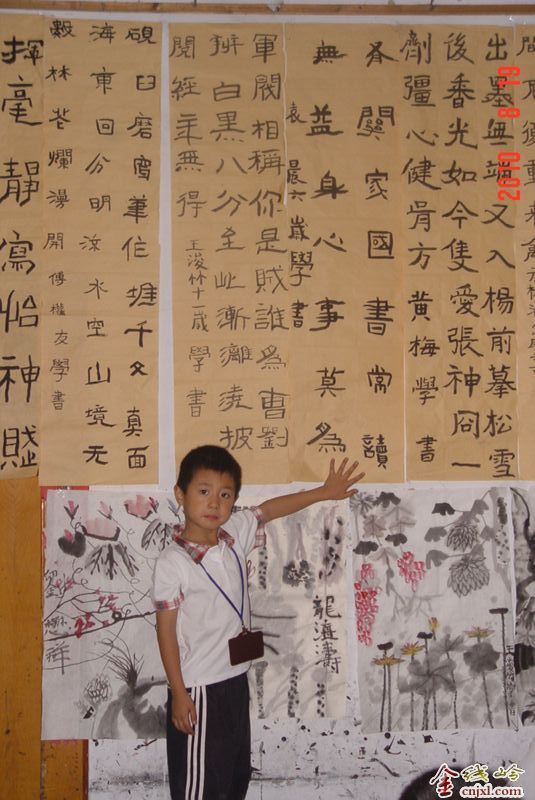 出墨無端又入楊前摹松雪
後香光如今隻愛張神冏一
劑彊心健骨方 黃梅學書
有關家國書常讀
無益身心事莫為
袁晨六歲學書
軍閥相稱你是賊誰為曹劉
辨白黑八分至此漸漓淩披
閱經年無得 王浚竹十一歲學書
硯臼磨穿筆作堆千文真面
海東回分明流水空山境无
穀林花爛漫開 傅權友學書
揮毫靜寫怡神賦
龍海濤
2010 8 19
金线岭
cnjxl.com